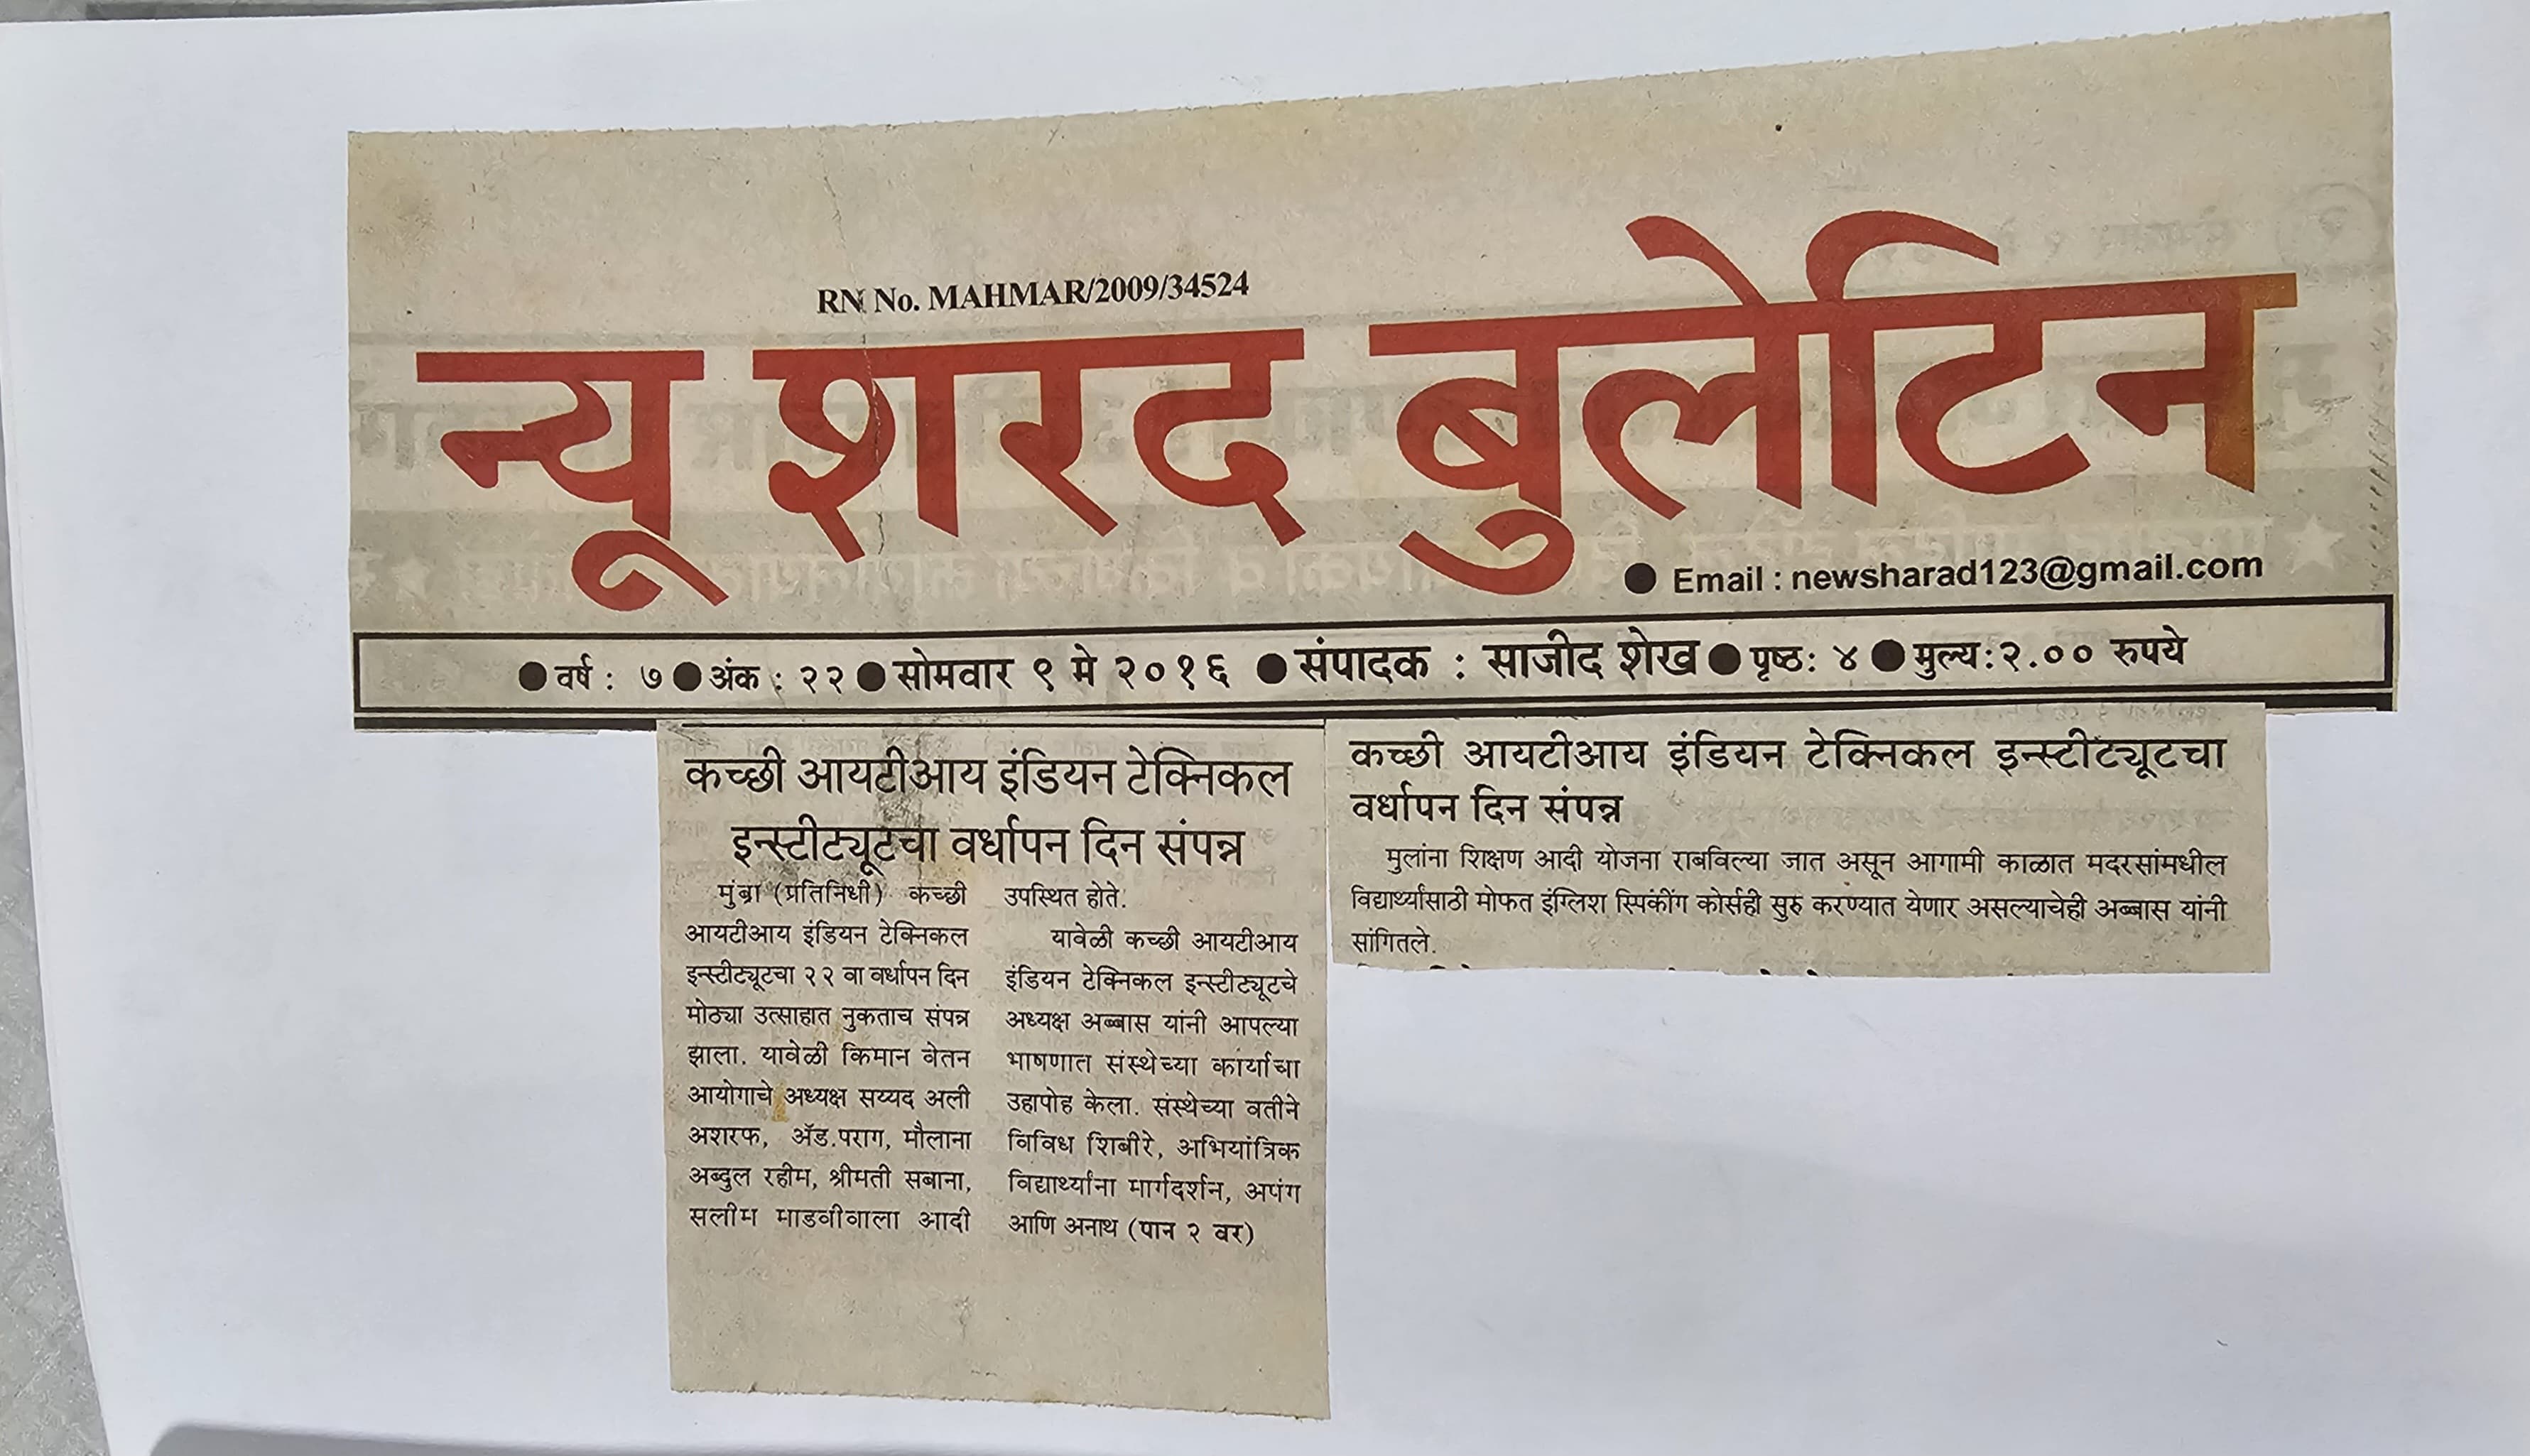 RN No. MAHMAR/2009/34524
न्यू शरद बुलेटिन
● Email : newsharad123@gmail.com
● वर्ष : ७ ● अंक : २२ ● सोमवार ९ मे २०१६ ● संपादक : साजीद शेख ● पृष्ठ: ४ ● मुल्य:२.०० रुपये
कच्छी आयटीआय इंडियन टेक्निकल
इन्स्टीट्यूटचा वर्धापन दिन संपन्न
मुंब्रा (प्रतिनिधी) कच्छी
आयटीआय इंडियन टेक्निकल
इन्स्टीट्यूटचा २२ वा वर्धापन दिन
मोठ्या उत्साहात नुकताच संपन्न
झाला. यावेळी किमान वेतन
आयोगाचे अध्यक्ष सय्यद अली
अशरफ, ॲड.पराग, मौलाना
अब्दुल रहीम, श्रीमती सबाना,
सलीम माडवीवाला आदी
उपस्थित होते.
यावेळी कच्छी आयटीआय
इंडियन टेक्निकल इन्स्टीट्यूटचे
अध्यक्ष अब्बास यांनी आपल्या
भाषणात संस्थेच्या कार्याचा
उहापोह केला. संस्थेच्या वतीने
विविध शिबीरे, अभियांत्रिक
विद्यार्थ्यांना मार्गदर्शन, अपंग
आणि अनाथ (पान २ वर)
कच्छी आयटीआय इंडियन टेक्निकल इन्स्टीट्यूटचा
वर्धापन दिन संपन्न
मुलांना शिक्षण आदी योजना राबविल्या जात असून आगामी काळात मदरसांमधील
विद्यार्थ्यांसाठी मोफत इंग्लिश स्पिकींग कोर्सही सुरु करण्यात येणार असल्याचेही अब्बास यांनी
सांगितले.